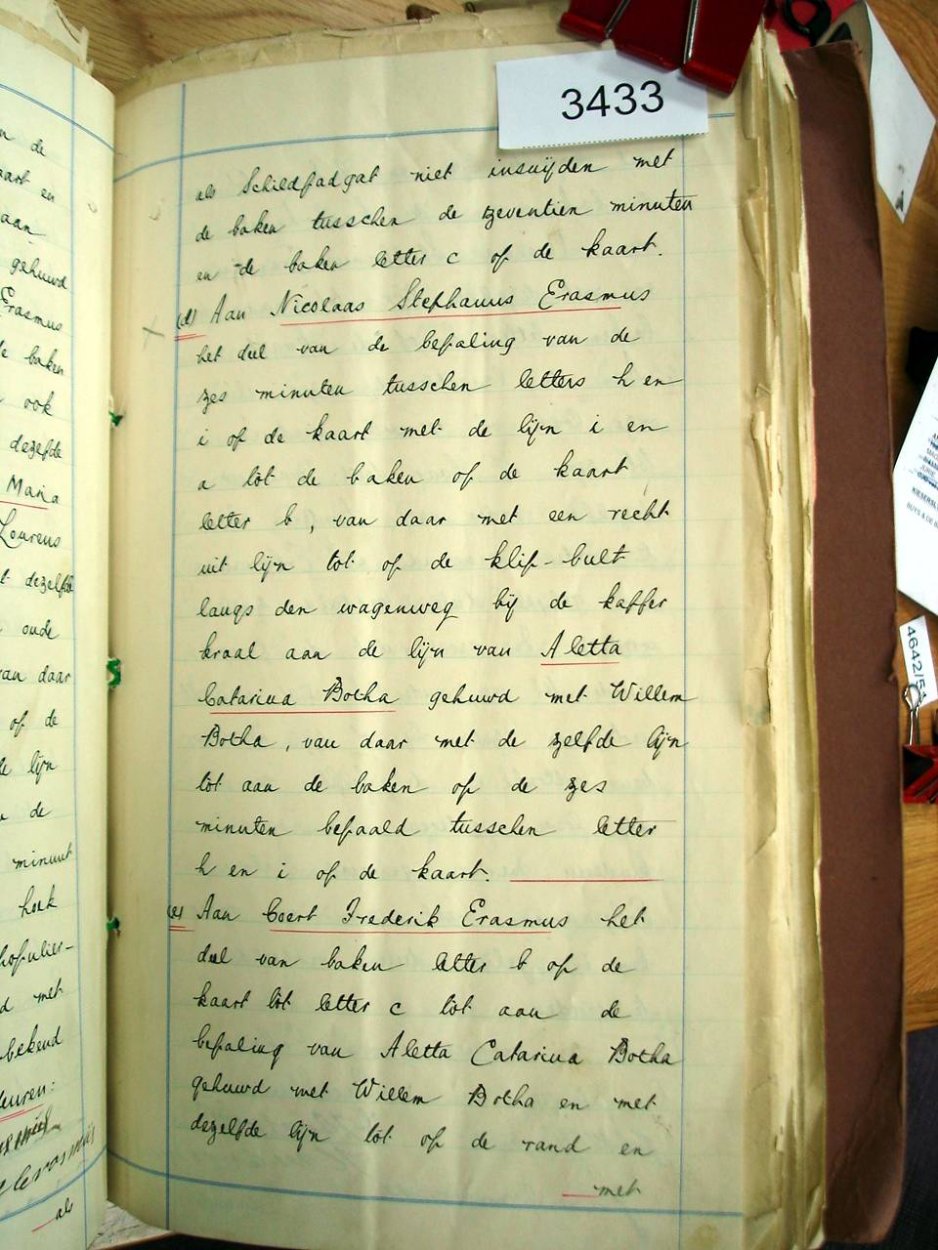 3433
als Schildpadgat niet insnijden met
de baken tusschen de zeventien minuten
en de baken letter c op de kaart.
(d) Aan Nicolaas Stephanus Erasmus
het deel van de bepaling van de
zes minuten tusschen letters h en
i op de kaart met de lijn i en
a tot de baken op de kaart
letter b, van daar met een recht
uit lijn tot op de klip-bult
langs den wagenweg bij de kaffer
kraal aan de lijn van Aletta
Catarina Botha gehuwd met Willem
Botha, van daar met de zelfde lijn
tot aan de baken op de zes
minuten bepaald tusschen letter
h en i op de kaart.
(e) Aan Coert Frederik Erasmus het
deel van baken letter b op de
kaart tot letter c tot aan de
bepaling van Aletta Catarina Botha
gehuwd met Willem Botha en met
dezelfde lijn tot op de rand en
met
de
en
aan
gehuwd
Erasmus
baken
ook
dezelfde
Maria
Lourens
dezelfde
oude
van daar
op de
lijn
de
minuut
hoek
met
bekend
als
4642/54